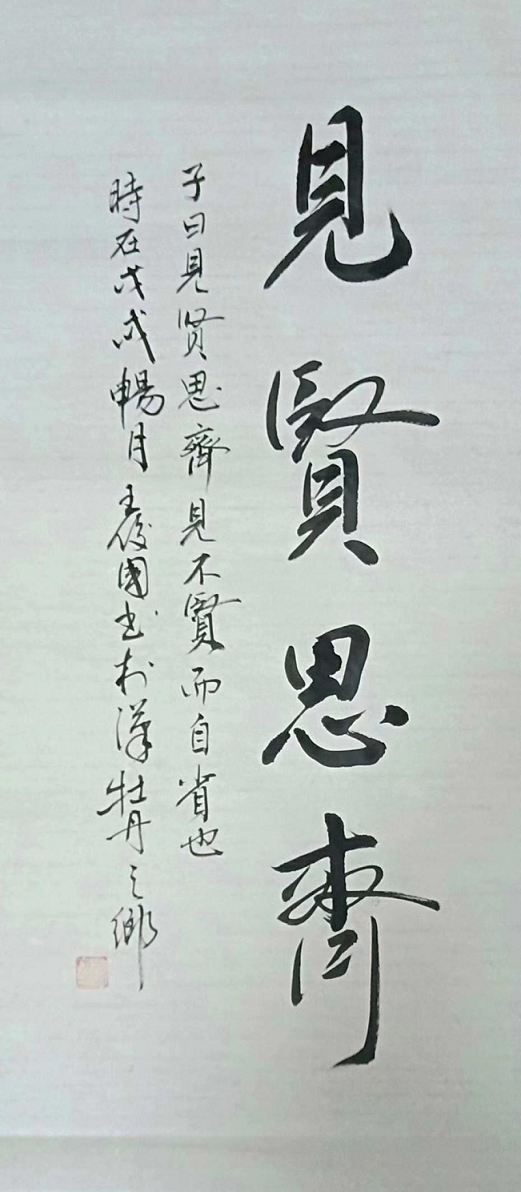 見賢思齊
子曰見贤思齊見不賢而自省也
時在戊戌暢月王俊國书於漢牡丹之鄉